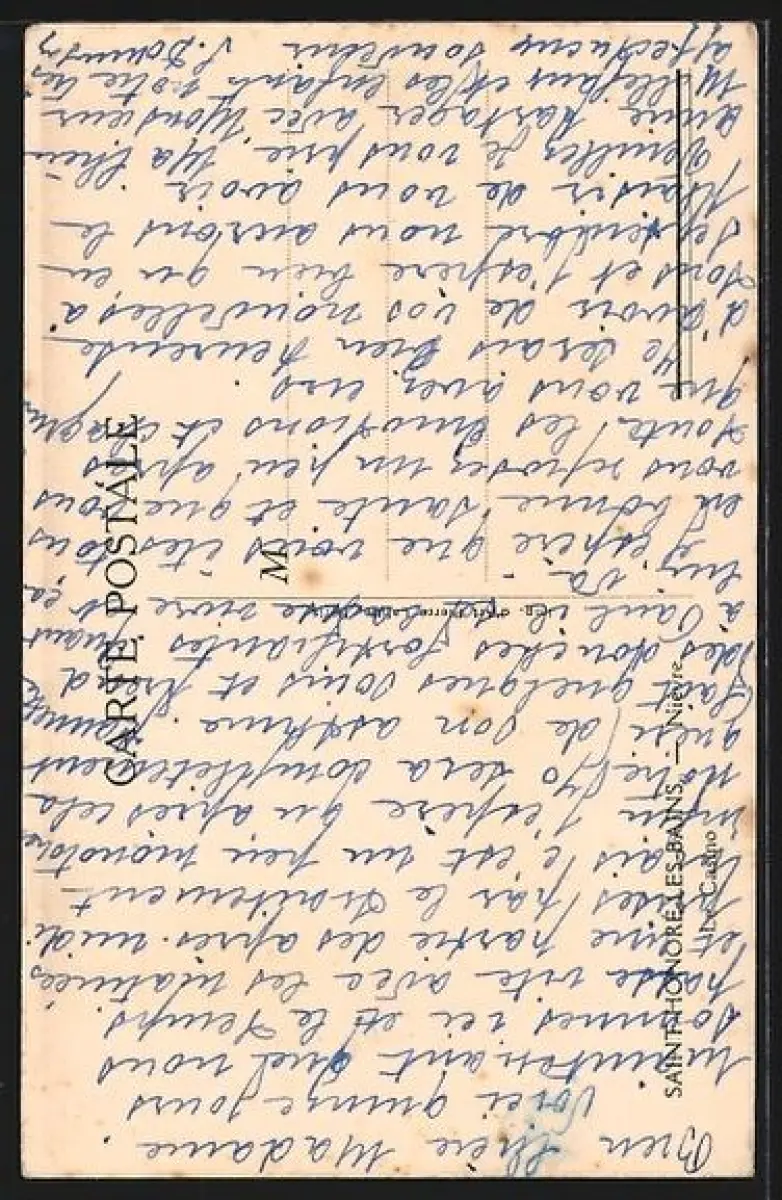 CARTE POSTALE
M
SAINT-HONORÉ-LES-BAINS. — Nièvre
Le Casino
Bien chère Madame.
Voici quinze jours
maintenant que nous
sommes ici et le temps
passe vite avec les matinées
et une partie des après-midi
prises par le traitement
mais c'est un peu monotone
enfin j'espère qu'après cela
notre Jo sera complètement
guéri de son asthme. Jeannette
fait quelques soins et prend
des douches fortifiantes quant
à Paul il se laisse vivre et ça
lui va.
J'espère que vous êtes tous
en bonne santé et que vous
vous reposez un peu après
toutes les émotions et chagrins
que vous avez eus.
Je serais bien heureuse
d'avoir de vos nouvelles à
tous et j'espère bien qu'en
septembre nous aurons le
plaisir de vous avoir.
Veuillez je vous prie, Ma chère
amie partager avec Monsieur
et les enfants notre très
affectueux souvenir